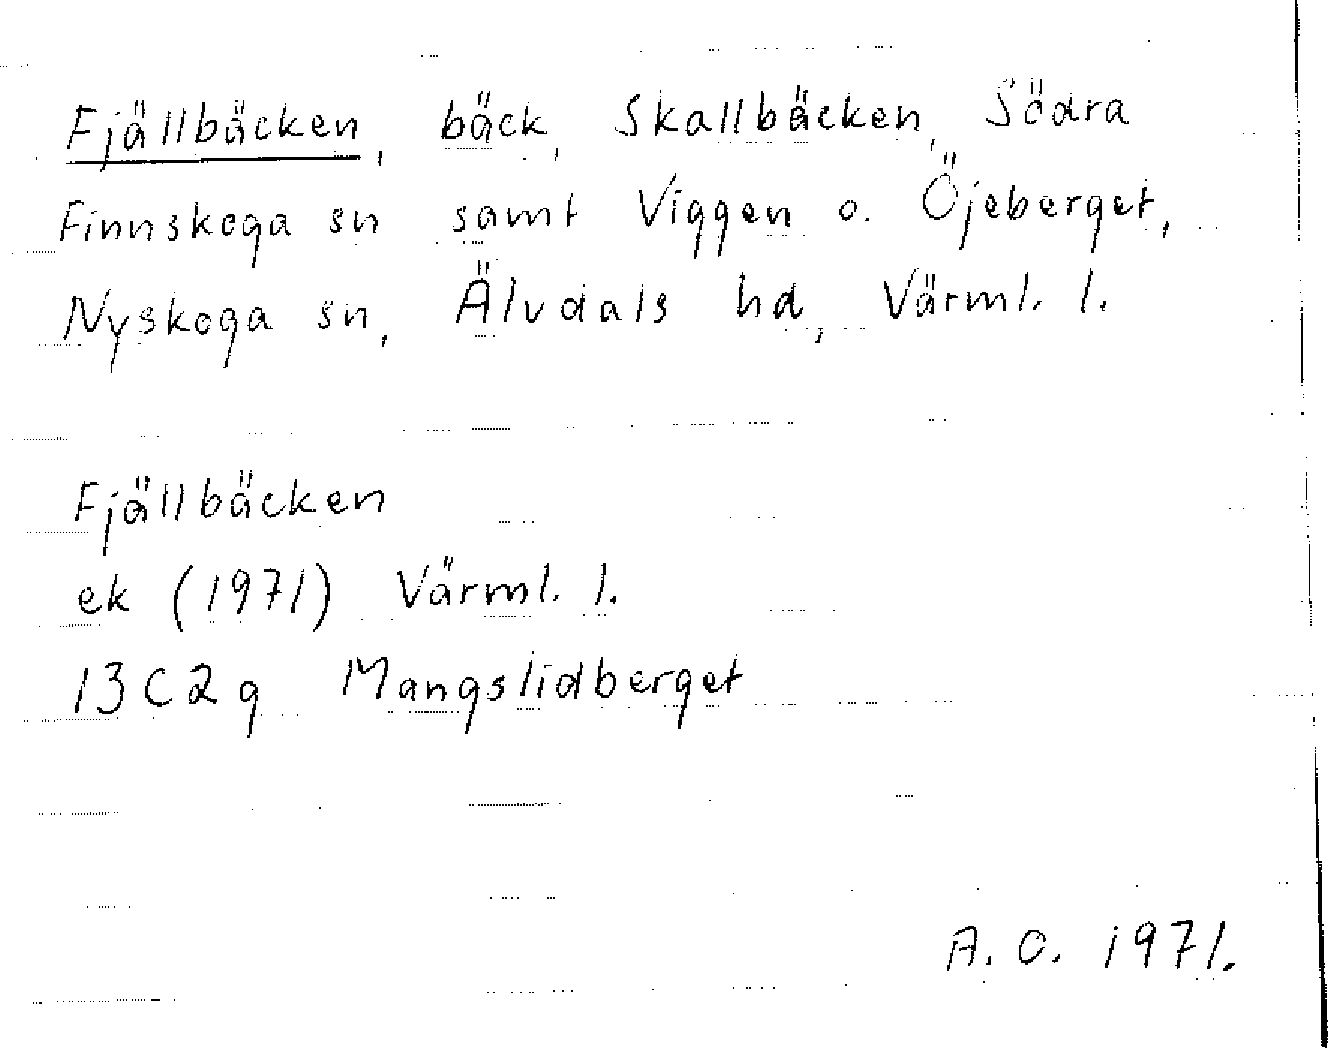 Fjällbäcken, bäck, Skallbäcken, Södra
Finnskoga sn samt Viggen o. Öjeberget,
Nyskoga sn, Älvdals hd, Värml. l.
Fjällbäcken
ek (1971) Värml. l.
13C2g Mangslidberget
A. O. 1971.